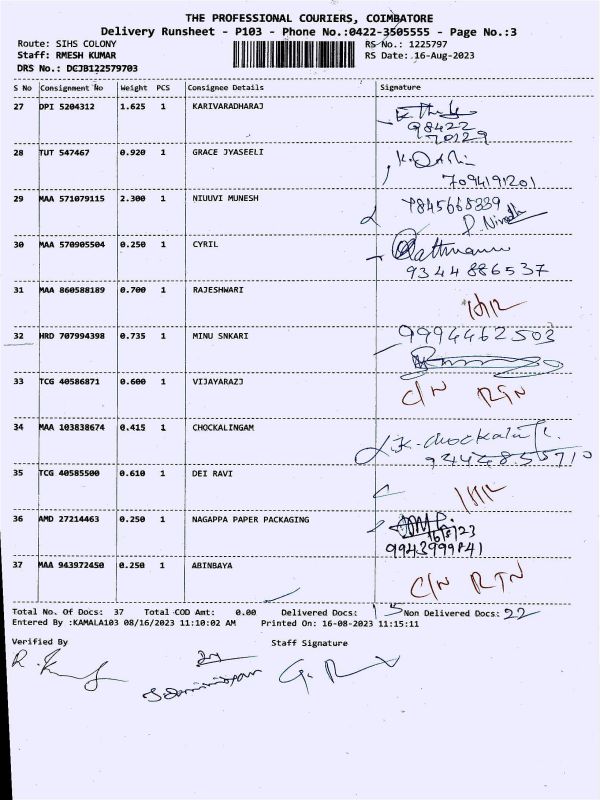 THE PROFESSIONAL COURIERS, COIMBATORE
Delivery Runsheet - P103 - Phone No.:0422-3505555 - Page No.:3
Route: SIHS COLONY RS No.: 1225797
Staff: RMESH KUMAR RS Date: 16-Aug-2023
DRS No.: DCJB122579703
S No Consignment No Weight PCS Consignee Details Signature
27 DPI 5204312 1.625 1 KARIVARADHARAJ
98422
70129
28 TUT 547467 0.920 1 GRACE JYASEELI
7094191201
29 MAA 571079115 2.300 1 NIUUVI MUNESH 7845668339
30 MAA 570905504 0.250 1 CYRIL
9344886537
31 MAA 860588189 0.700 1 RAJESHWARI
32 HRD 707994398 0.735 1 MINU SNKARI 9994462503
33 TCG 40586871 0.600 1 VIJAYARAZJ C/N RTN
34 MAA 103838674 0.415 1 CHOCKALINGAM
35 TCG 40585500 0.610 1 DEI RAVI
36 AMD 27214463 0.250 1 NAGAPPA PAPER PACKAGING
9943999841
37 MAA 943972450 0.250 1 ABINBAYA C/N RTN
Total No. Of Docs: 37 Total COD Amt: 0.00 Delivered Docs: 15 Non Delivered Docs: 22
Entered By :KAMALA103 08/16/2023 11:10:02 AM Printed On: 16-08-2023 11:15:11
Verified By Staff Signature